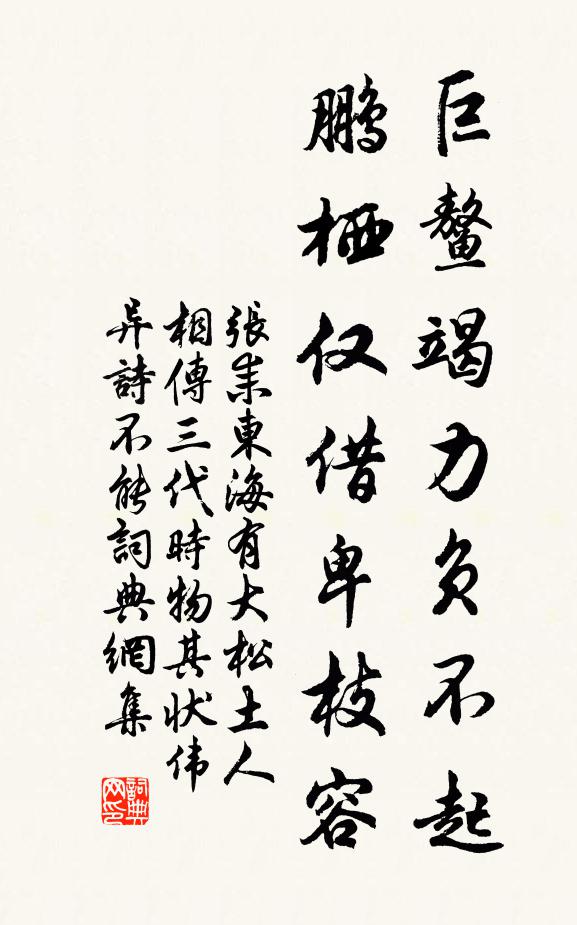 巨鳌竭力负不起
鹏栖仅借卑枝容
張耒東海有大松土人
相傳三代時物其狀伟
异詩不能詞典網集
詞典
网印